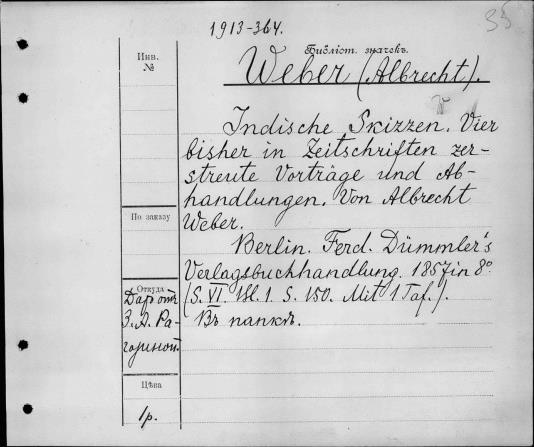 1913-364.
35
Библіот. значекъ.
Инв.
№
Weber (Albrecht).
Indische Skizzen. Vier
bisher in Zeitschriften zer-
streute Vorträge und Ab-
handlungen. Von Albrecht
Weber.
По заказу
Berlin. Ferd. Dümmler's
Verlagsbuchhandlung. 1857 in 8º
(S. VI. Bl. 1. S. 150. Mit 1 Taf.).
Въ папкѣ.
Откуда
Даръ отъ
З. А. Ра-
гозиной.
Цѣна
1р.